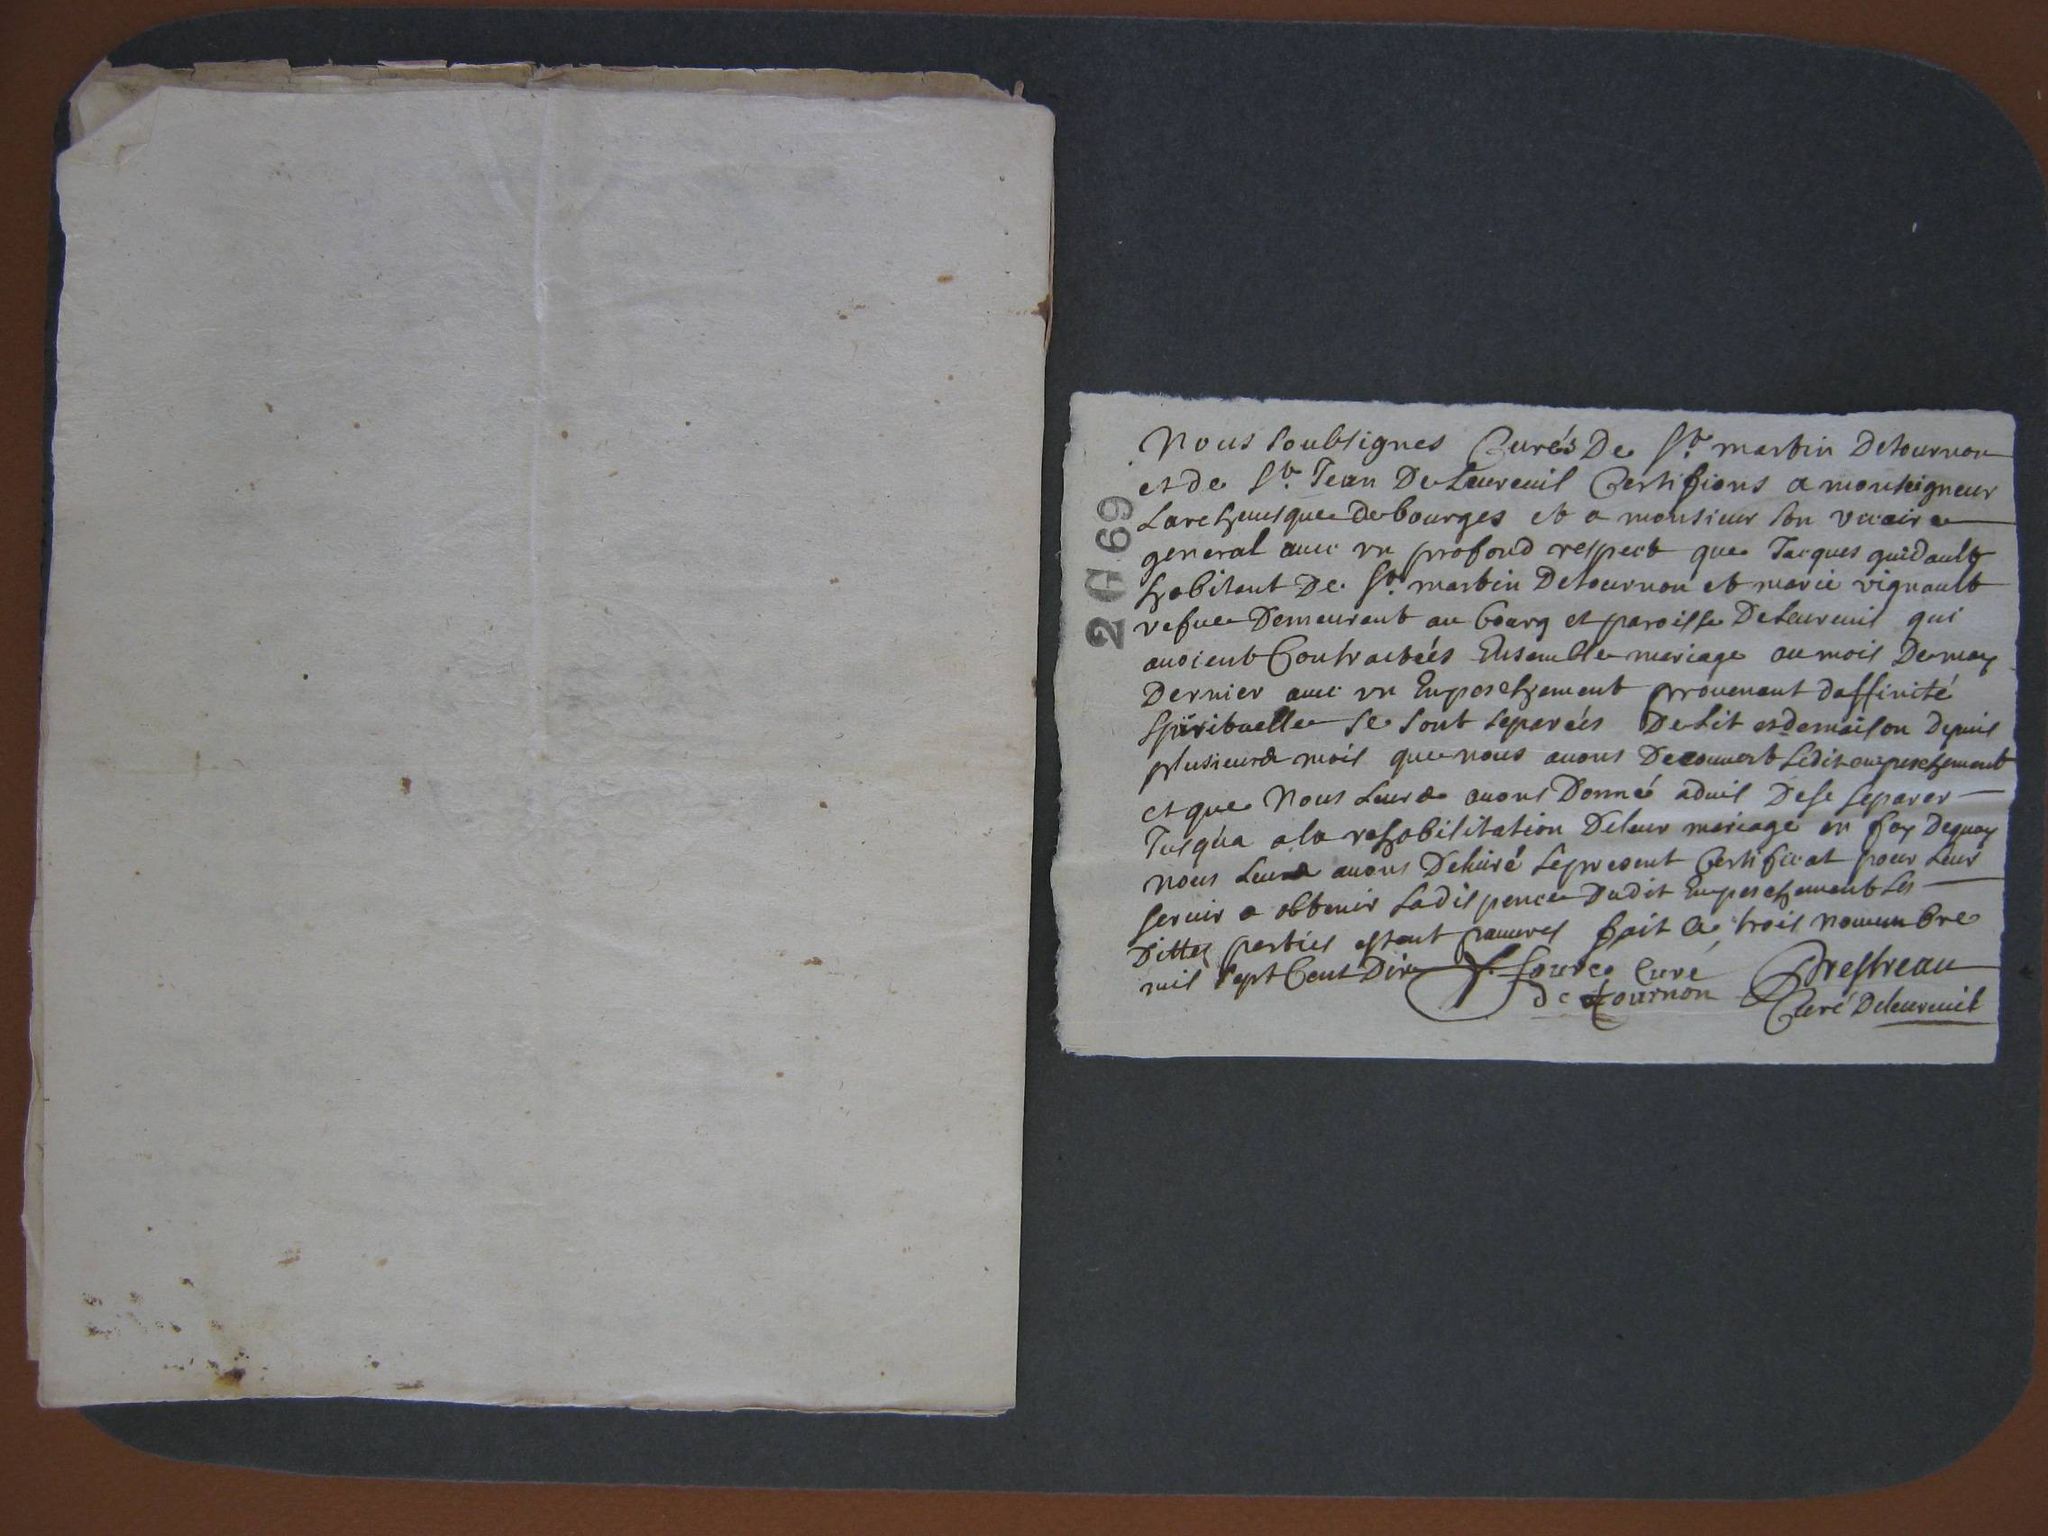 Nous soubsignes Curés De St. martin Detournon
et de St. Jean De Leureuil Certifions a monseigneur
Larchevesque de bourges et a monsieur son vicaire
general avec un profond respect que Jacques guidault
habitant De St. martin Detournon et marie vignault
vefue Demeurent au bourg et paroisse De Leureuil qui
avoient Contractées Ensemble mariage au mois De may
Dernier avec un Empeschement provenant daffinité
Spirituelle se sont separées De Lit et demaison Depuis
plusieurs mois que nous avons Decouvert Ledit empeschement
et que Nous Leurs avons Donné advis De se separer
Jusqua a la rehabilitation De leur mariage en foy Dequoy
nous Leurs avons Delivré Lepresent Certificat pour Leur
servir a obtenir La dispence Dudit Empeschement Les
Dittes parties estant pauvres fait Ce trois novembre
mil sept Cent Dix
fource Curé
de tournon
Prestreau
Curé Deleureuil
2G 69